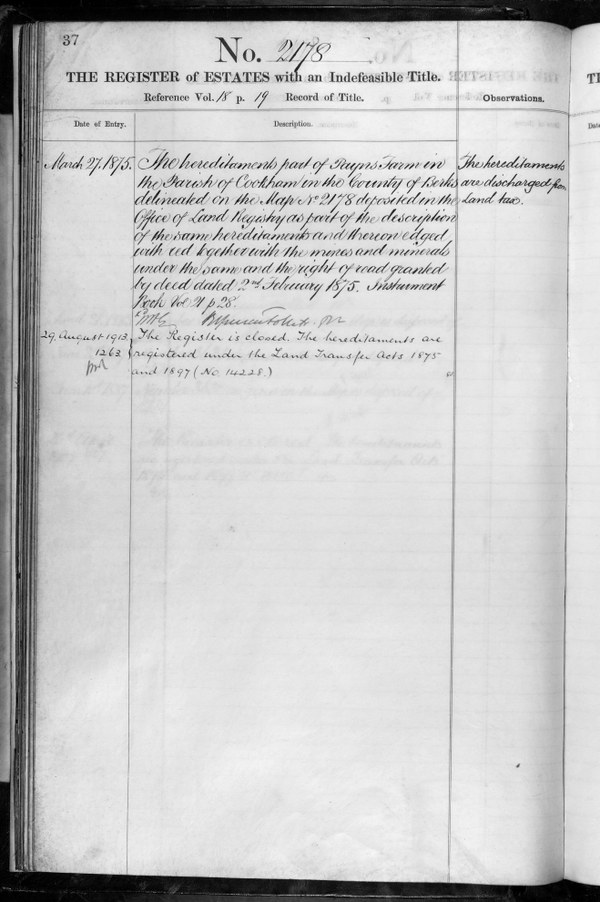 37
No. 2178
THE REGISTER of ESTATES with an Indefeasible Title.
Reference Vol. 18 p. 19 Record of Title.
Observations.
Date of Entry.
Description.
March 27. 1875.
The hereditaments part of Farm in
the Parish of Cookham in the County of Berks
delineated on the Map No 2178 deposited in the
Office of Land Registry as part of the description
of the same hereditaments and thereon edged
with red together with the mines and minerals
under the same and the right of road granted
by deed dated 2nd February 1875. Instrument
Book Vol 21 p 28.
The hereditaments
are discharged from
Land tax.
29. August 1913
1263
The Register is closed. The hereditaments are
registered under the Land Transfer Acts 1875
and 1897 (No 14228.)